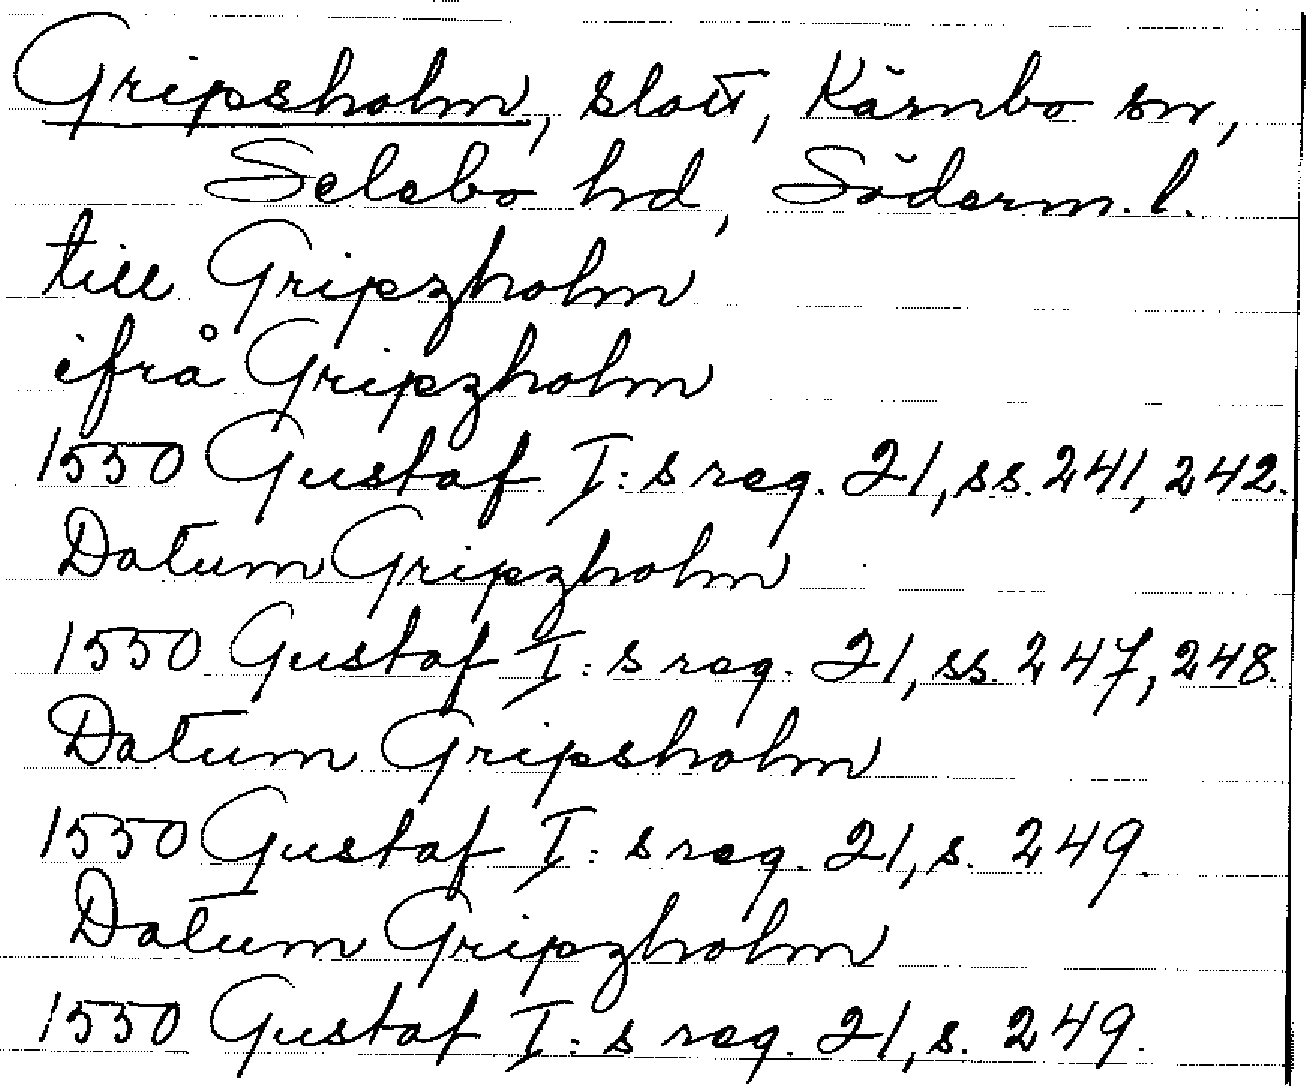 Gripsholm, slott, Kärnbo sn,
Selebo hd, Söderm. l.
till Gripzholm
ifrå Gripzholm
1550 Gustaf I:s reg. 21, ss. 241, 242.
Datum Gripzholm
1550 Gustaf I:s reg. 21, ss. 247, 248.
Datum Gripsholm
1550 Gustaf I:s reg. 21, s. 249.
Datum Gripzholm
1550 Gustaf I:s reg. 21, s. 249.